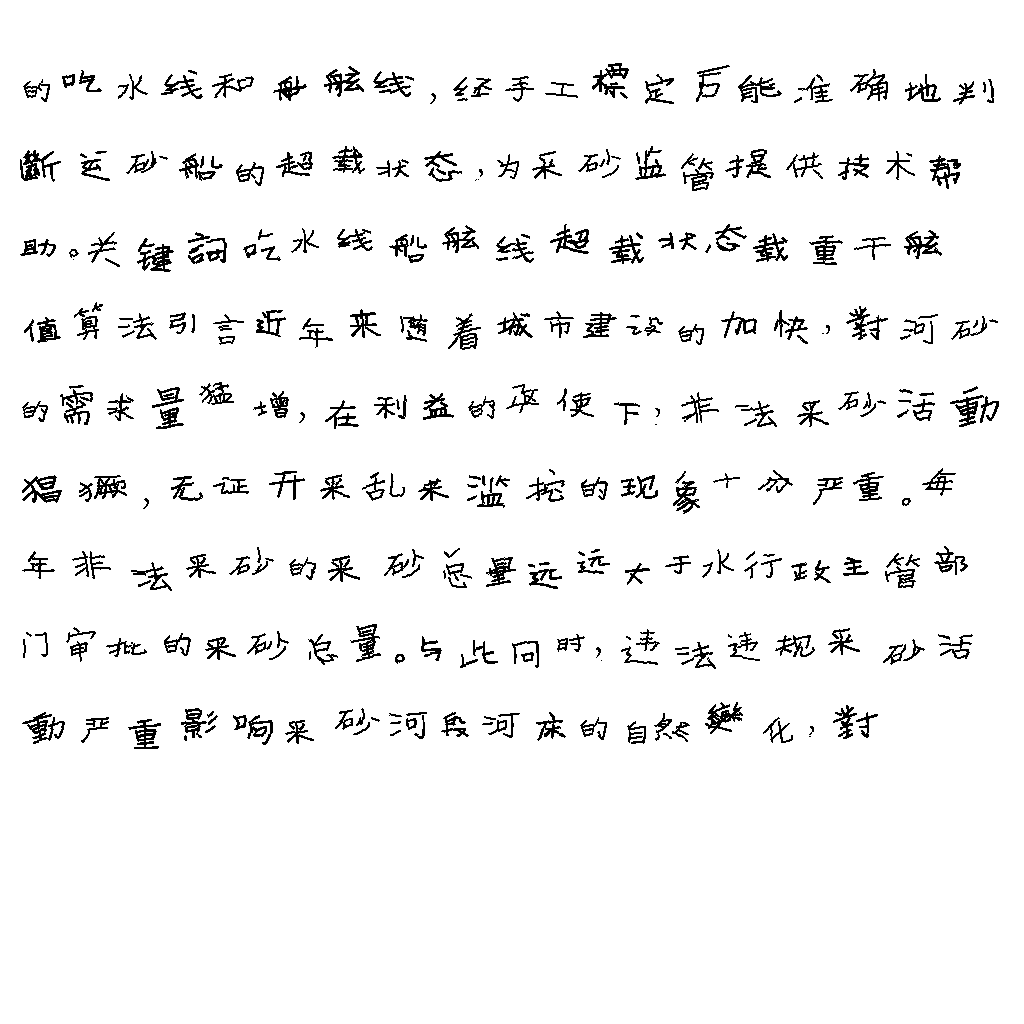 的吃水线和船舷线,经手工標定后能准确地判
斷运砂船的超载状态,为采砂监管提供技术帮
助。关键詞吃水线船舷线超载状态载重干舷
值算法引言近年来随着城市建设的加快,對河砂
的需求量猛增,在利益的驱使下,非法采砂活動
猖獗,无证开采乱采滥挖的现象十分严重。每
年非法采砂的采砂总量远远大于水行政主管部
门审批的采砂总量。与此同时,违法违规采砂活
動严重影响采砂河段河床的自然變化,對